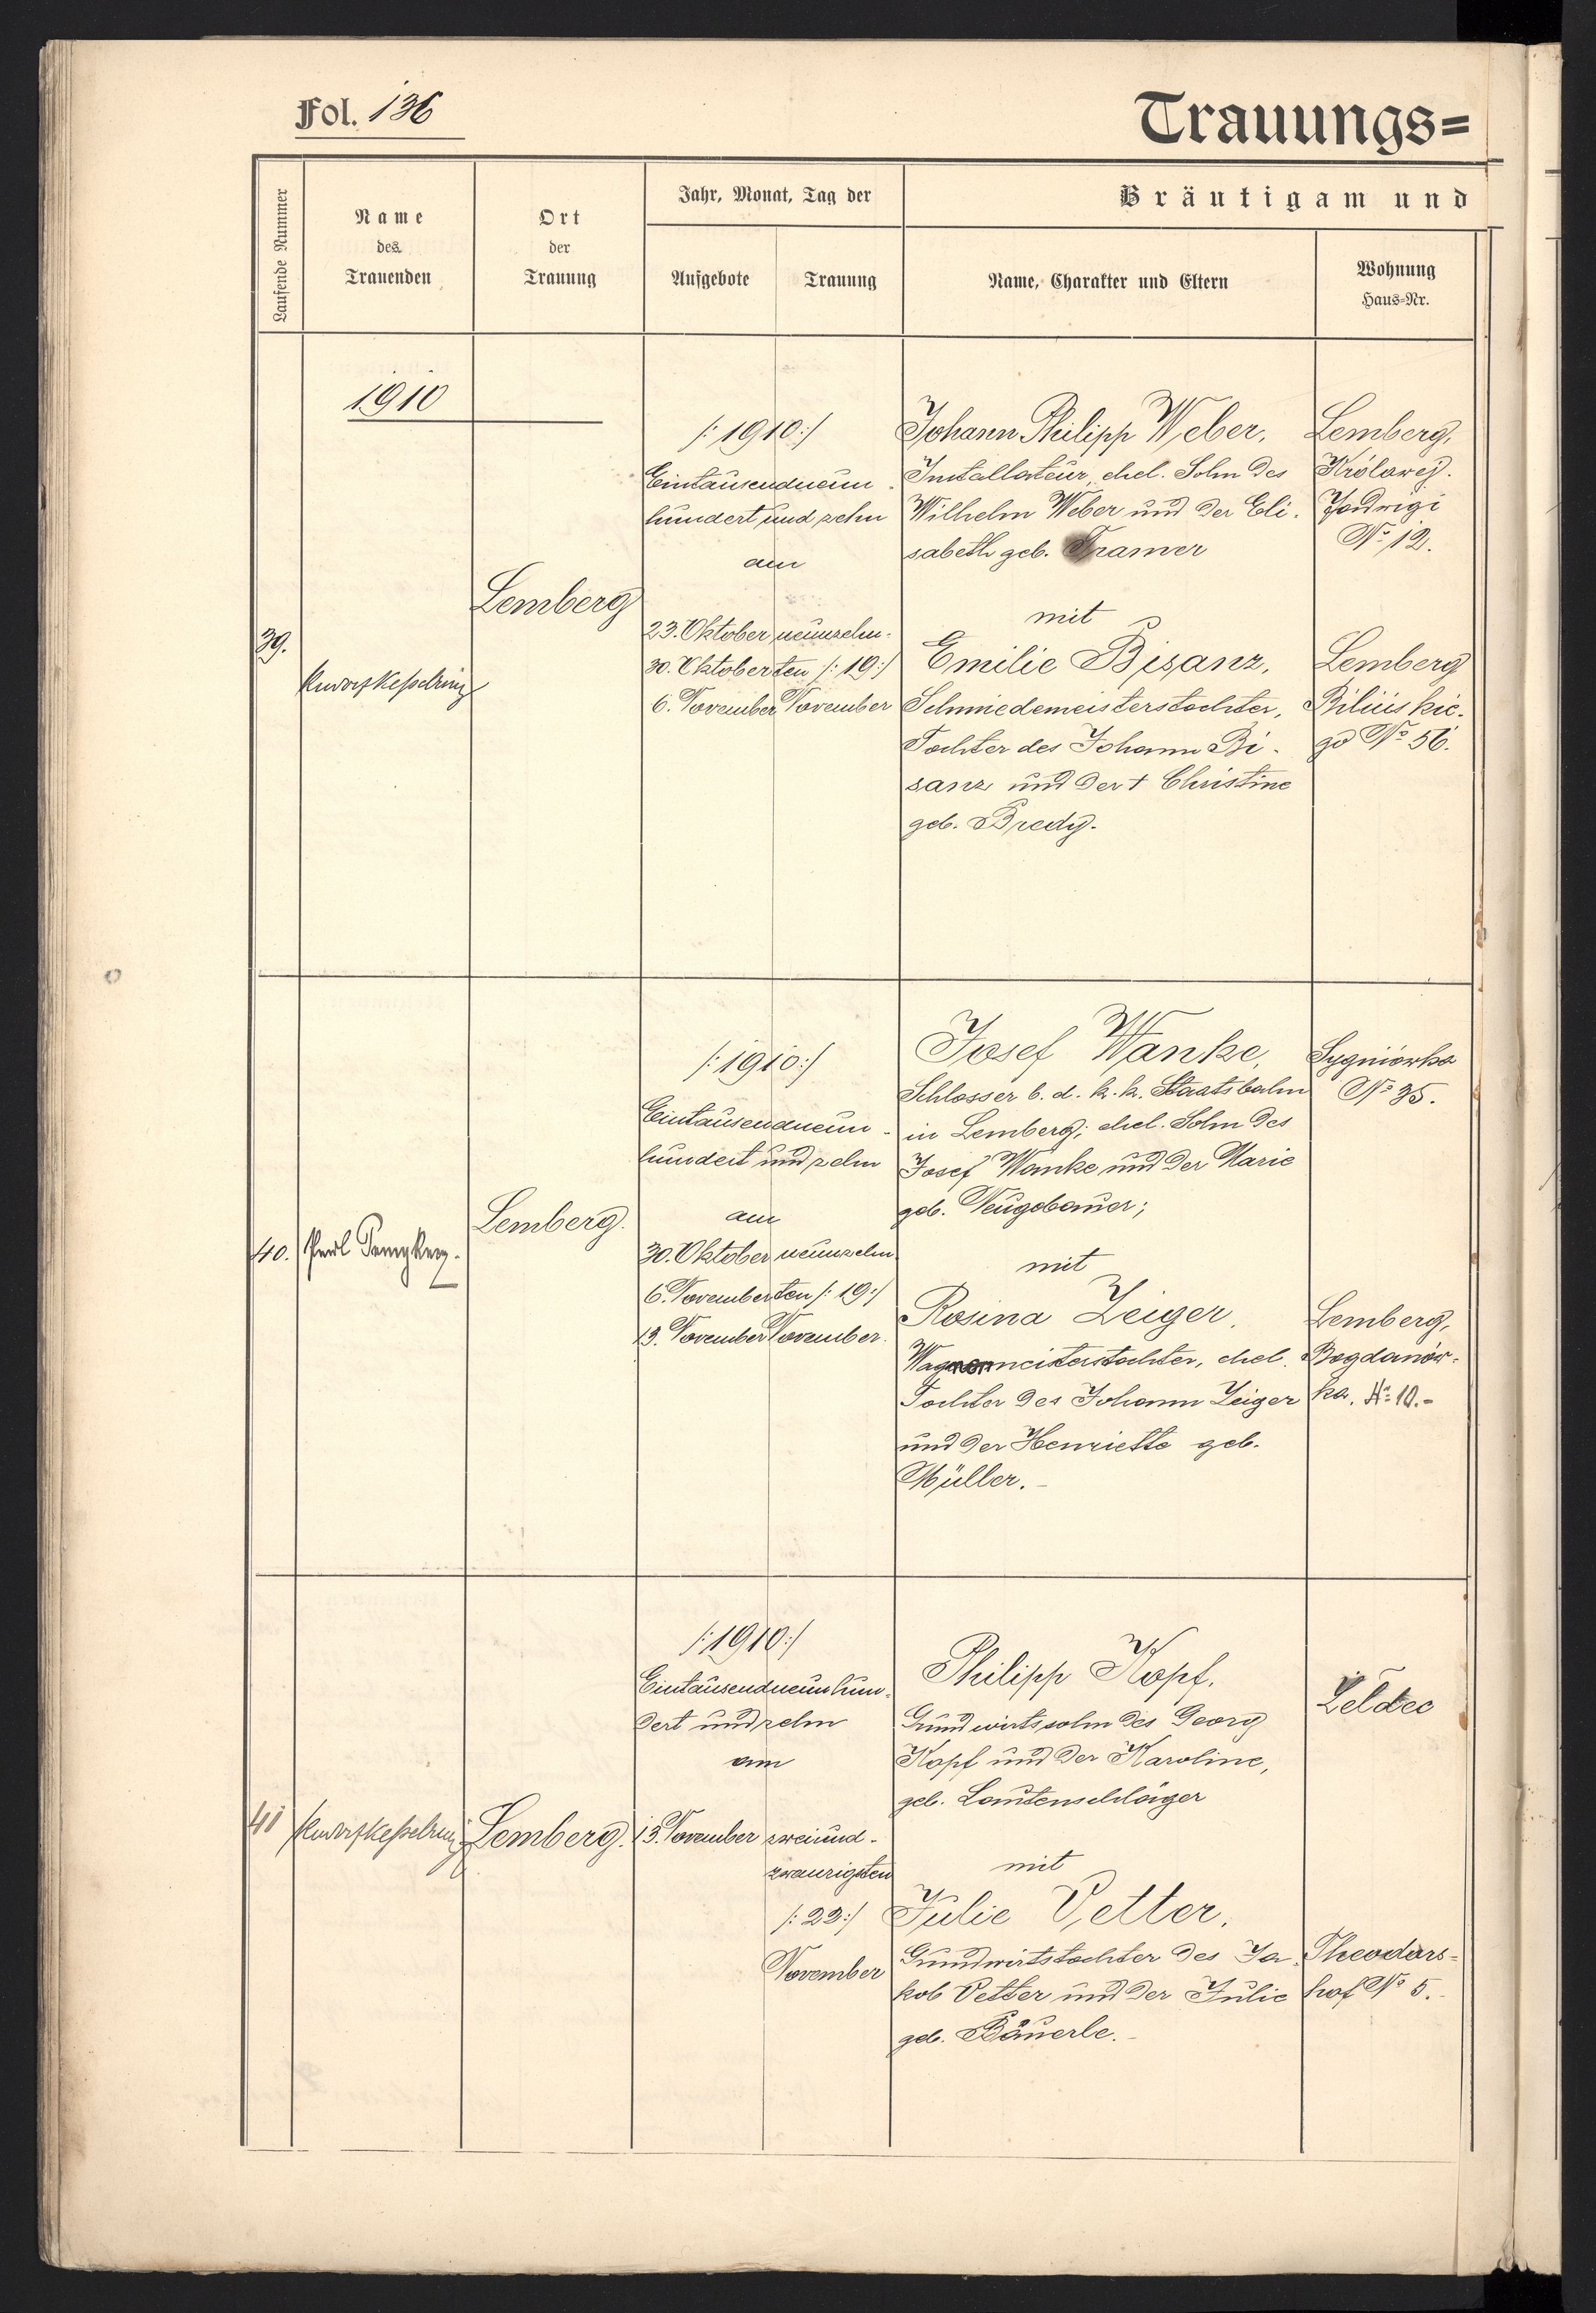 Fol. 136
Trauungs=
Laufende Nummer
Name
des
Trauenden
Ort
der
Trauung
Jahr, Monat, Tag der
Aufgebote
Trauung
Bräutigam und
Name, Charakter und Eltern
Wohnung
Haus=Nr.
1910
39.
Lemberg
/:1910:/
Eintausendneun-
hundert und zehn
am
23. Oktober neunzehn-
30. Oktober ten /:19:/
6. November November
Johann Philipp Weber,
Installateur, ehel. Sohn des
Wilhelm Weber und der Eli-
sabeth geb. Tramer
mit
Emilie Bisanz,
Schmiedemeisterstochter,
Tochter des Johann Bi-
sanz und der † Christine
geb. Bredy.
Lemberg,
Królowej
Jadwigi
No 12.
Lemberg
No 56.
40.
Lemberg.
/:1910:/
Eintausendneun-
hundert und zehn
am
30. Oktober neunzehn
6. November ten /:19:/
13. November November
Josef Wanke,
Schlosser b. d. k. k. Staatsbahn
in Lemberg; ehel. Sohn des
Josef Wanke und der Marie
geb. Neugebauer;
mit
Rosina Zeiger,
Wagnermeisterstochter, ehel.
Tochter des Johann Zeiger
und der Henriette geb.
Müller.-
Sygniówka
No 35.
Lemberg,
Bogdanów-
ka, No 10.-
41
Lemberg.
/:1910:/
Eintausendneunhun-
dert und zehn
am
13. November zweiund-
zwanzigsten
/:22:/
November
Philipp Kopf,
Grundwirtssohn des Georg
Kopf und der Karoline,
geb. Lautenschläger
mit
Julie Vetter,
Grundwirtstochter des Ja-
kob Vetter und der Julie
geb. Bäuerle.-
Zeldec
Theodors-
hof No 5.